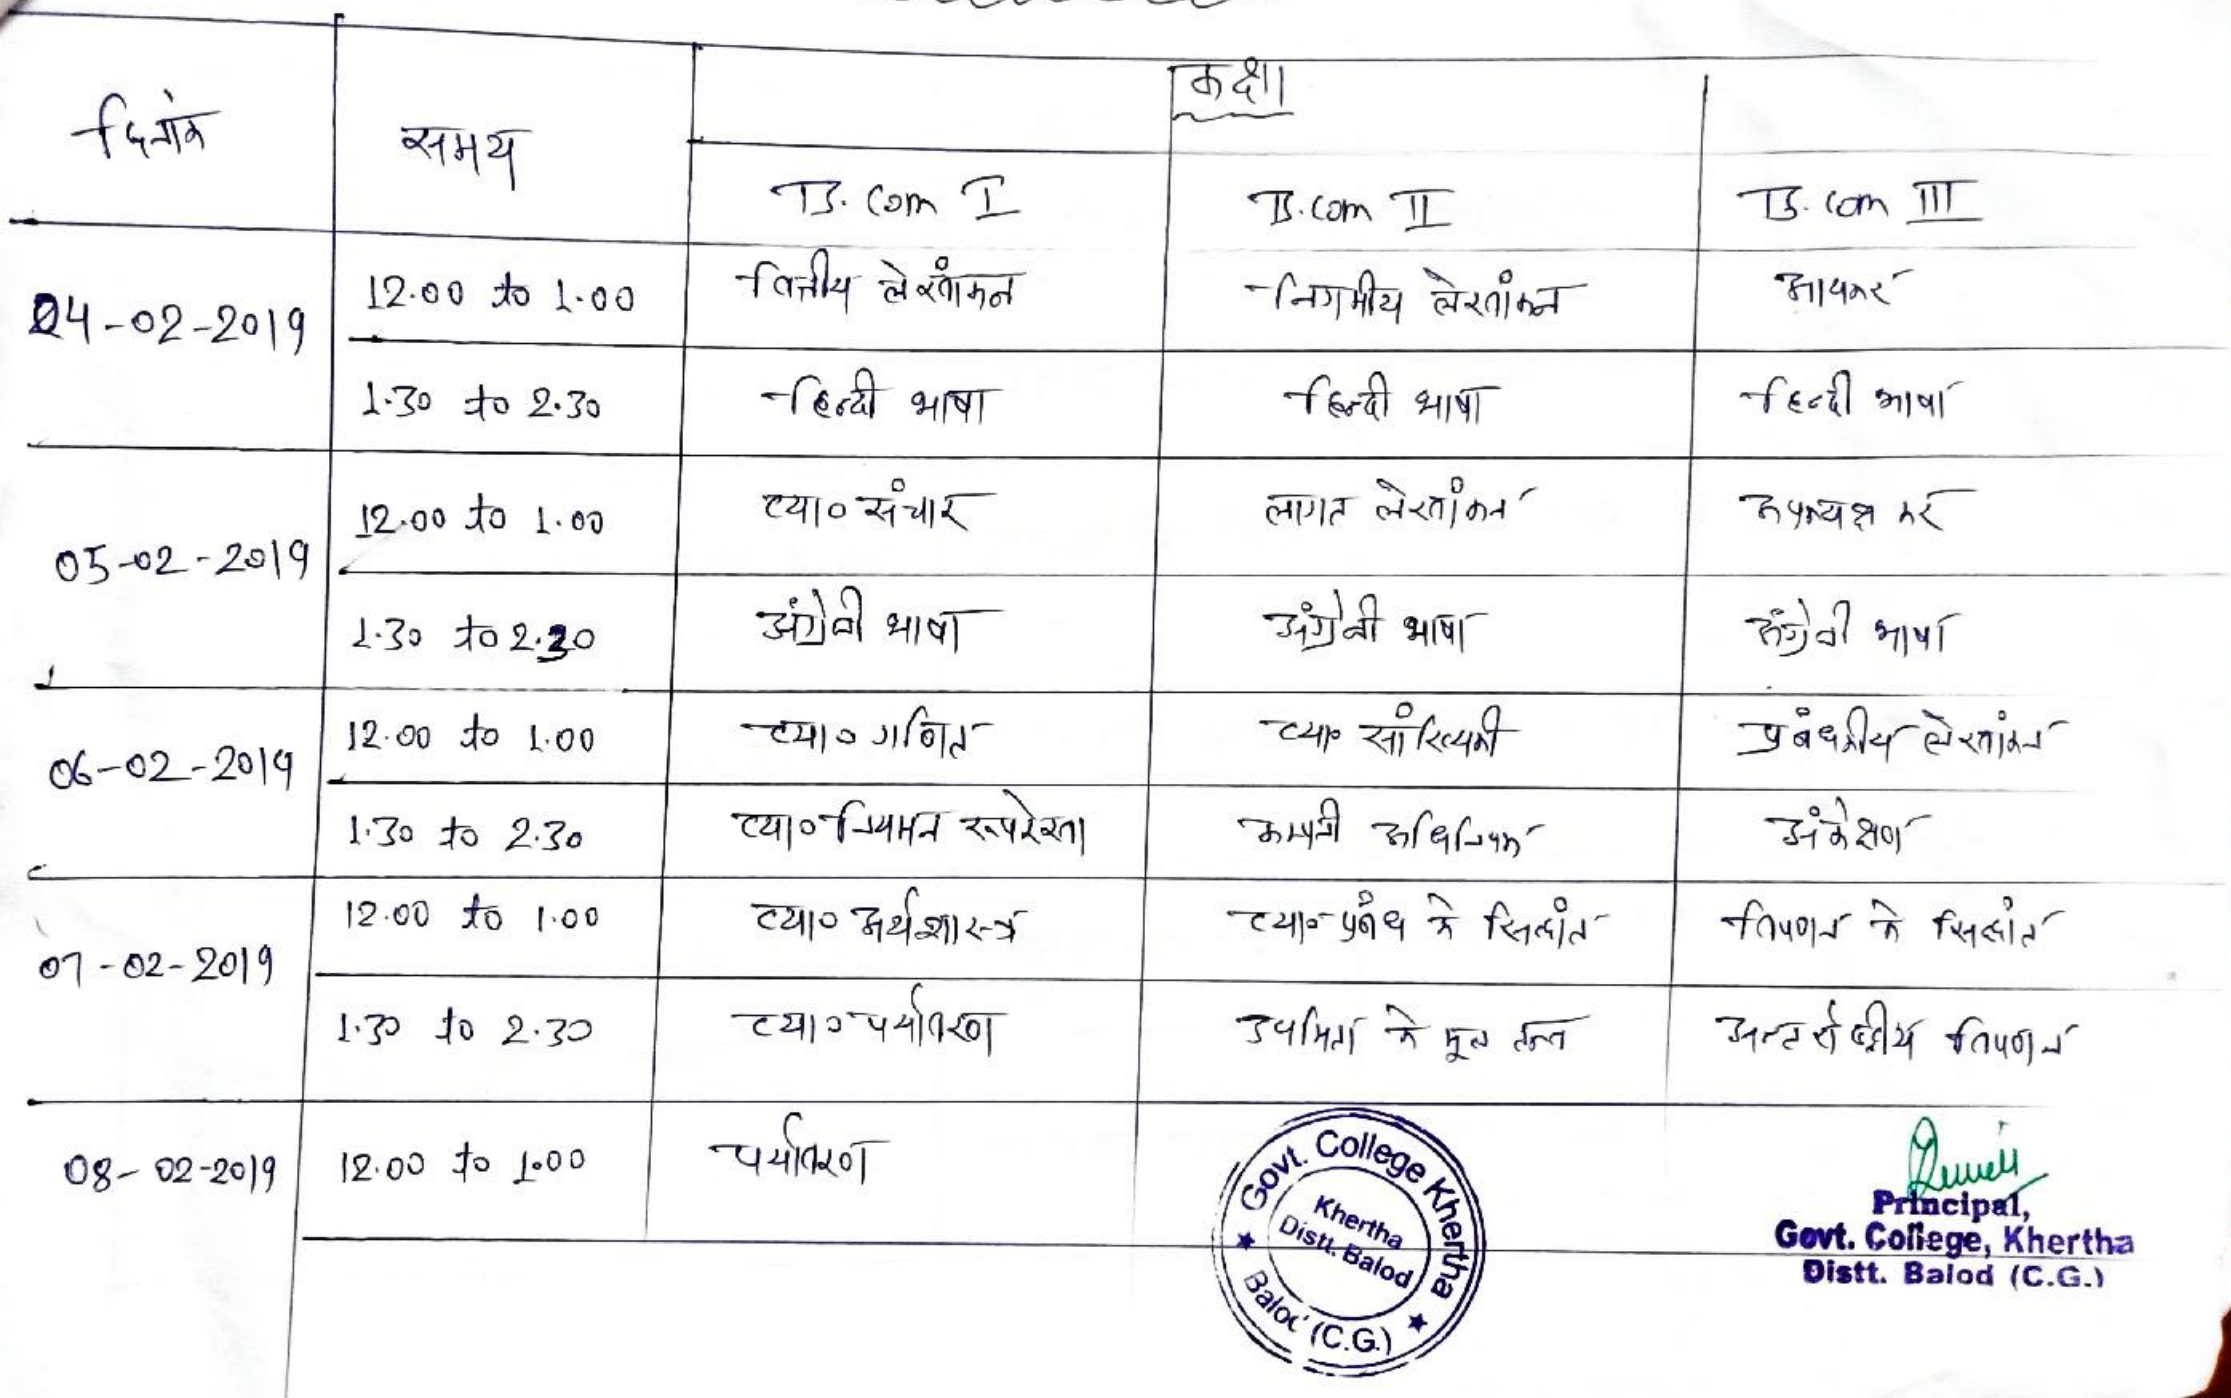 कक्षा
दिनांक समय
B. Com I B.Com II B. Com III
04-02-2019 12.00 to 1.00 वित्तीय लेखांकन निगमीय लेखांकन आयकर
1.30 to 2.30 हिन्दी भाषा हिन्दी भाषा हिन्दी भाषा
05-02-2019 12.00 to 1.00 व्या० संचार लागत लेखांकन अप्रत्यक्ष कर
1.30 to 2.30 अंग्रेजी भाषा अंग्रेजी भाषा अंग्रेजी भाषा
06-02-2019 12.00 to 1.00 व्या० गणित व्या० सांख्यिकी प्रबंधकीय लेखांकन
1.30 to 2.30 व्या० नियमन रूपरेखा कम्पनी अधिनियम अंकेक्षण
07-02-2019 12.00 to 1.00 व्या० अर्थशास्त्र व्या० प्रबंध के सिद्धांत विपणन के सिद्धांत
1.30 to 2.30 व्या० पर्यावरण उद्यमिता के मूल तत्व अन्तर्राष्ट्रीय विपणन
08-02-2019 12.00 to 1.00 पर्यावरण
Govt. College Khertha
Khertha
Distt. Balod
Balod (C.G.)
Principal,
Govt. College, Khertha
Distt. Balod (C.G.)